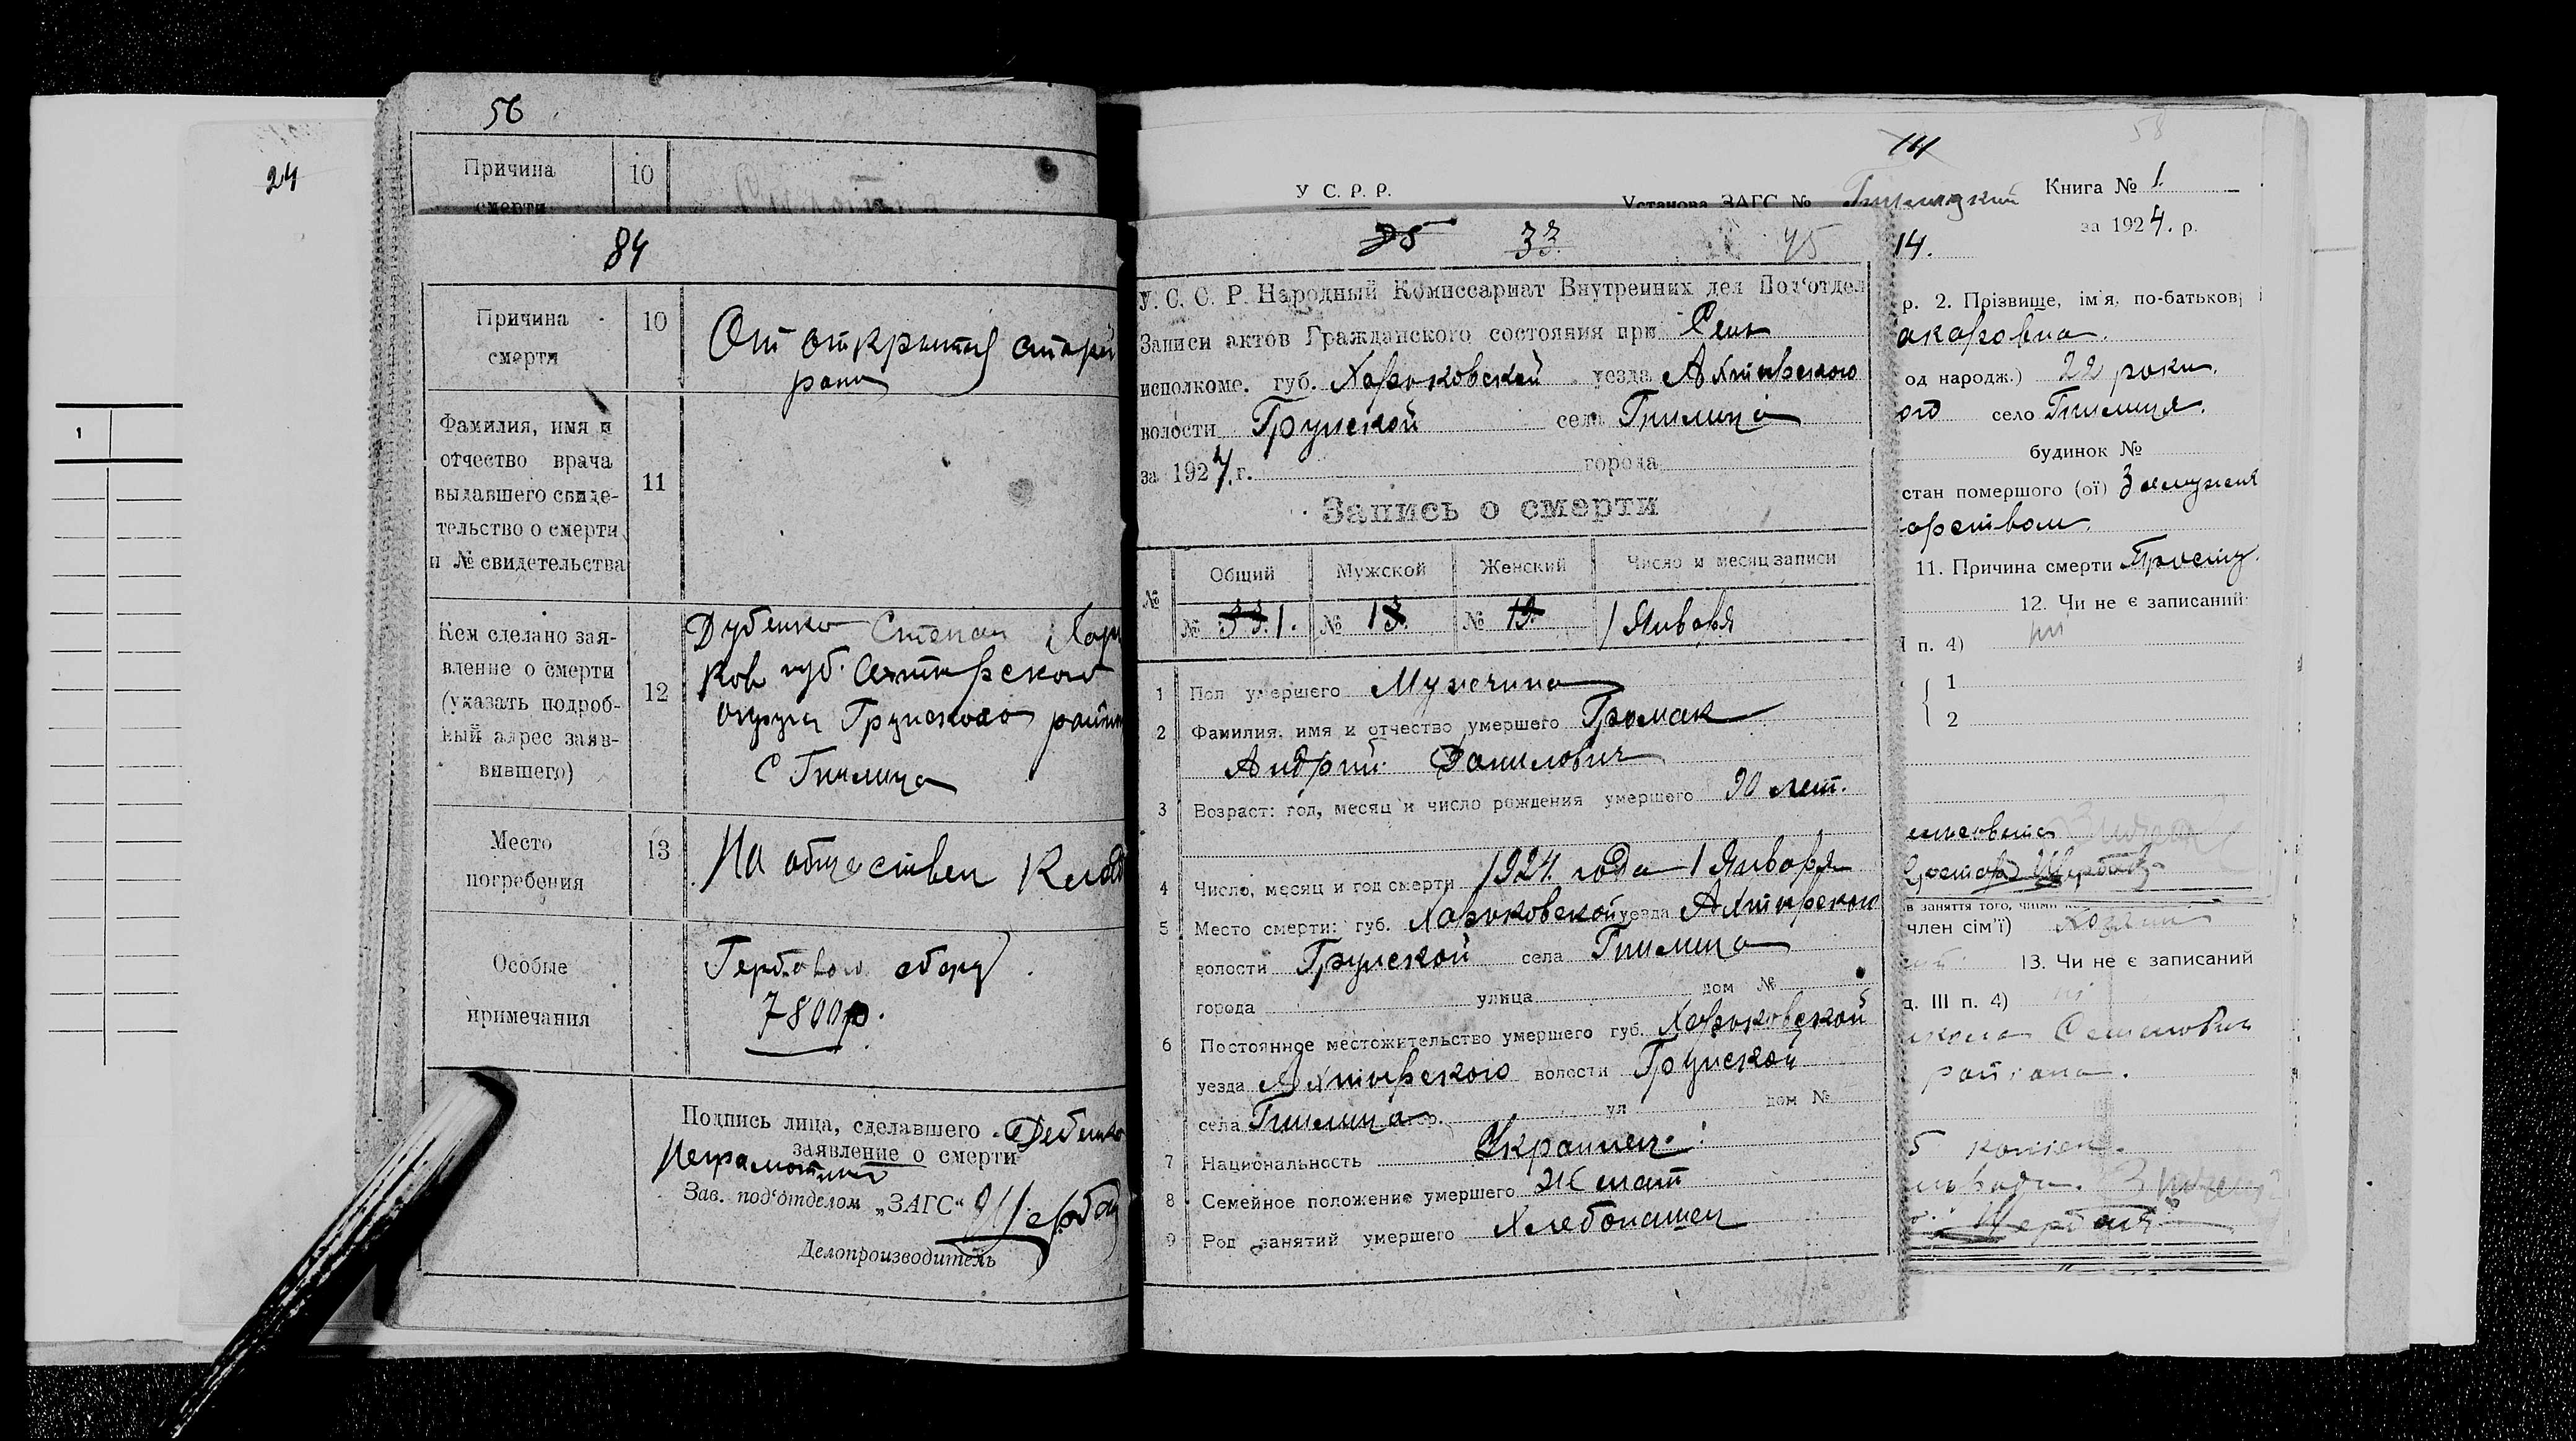 24
1
56
Причина
смерти
10
84
Причина
смерти
10
От открытия старой
раны
Фамилия, имя и
отчество врача
выдавшего свиде-
тельство о смерти
и № свидетельства
11
Кем сделано зая-
вление о смерти
(указать подроб-
ный адрес заяв-
вившего)
12
Дубенко Степан Харь
ков губ. Ахтырского
округа Грунского район
с Гнилица
Место
погребения
13
На обществен клад
Особые
примечания
Гербовой сбору
7800р.
Подпись лица, сделавшего
заявление о смерти
Неграмотный
Зав. под'отделом „ЗАГС“ Щерба
Делопроизводитель
25 33 45
У. С. С. Р. Народный Комиссариат Внутренних дел Под'отдел
Записи актов Гражданского состояния при Сель
исполкоме. губ. Харьковской уезда Ахтырского
волости Грунской села Гнилица
за 1924 г. города
Запись о смерти
№ Общий Мужской Женский Число и месяц записи
№ 33. 1. № 13. № 19. 1 Января
1 Пол умершего Мужчина
2 Фамилия, имя и отчество умершего Громак
Андрий Данилович
3 Возраст: год, месяц и число рождения умершего 90 лет.
4 Число, месяц и год смерти 1924 года 1 Января
5 Место смерти: губ. Харьковской уезда Ахтырского
волости Грунской села Гнилица
города улица дом №
6 Постоянное местожительство умершего губ. Харьковской
уезда Ахтырского волости Грунской
села Гнилица гор. ул дом №
7 Национальность Украинец
8 Семейное положение умершего Женат
9 Род занятий умершего Хлебопашец
58
14
У С. Р. Р.
Установа ЗАГС № Гнилицкий
Книга № 1.
за 1924. р.
14.
р. 2. Прізвище, ім'я, по-батькові
акаровна.
од народж.) 22 роки.
ого село Гнилиця.
будинок №
стан помершого (ої) Замужня
арством.
11. Причина смерти
12. Чи не є записаний
п. 4) ні
1
2
в заняття того, чиїм
член сім'ї)
13. Чи не є записаний
д. III п. 4) ні
Семенович
района.
5 копіек.
Щербань